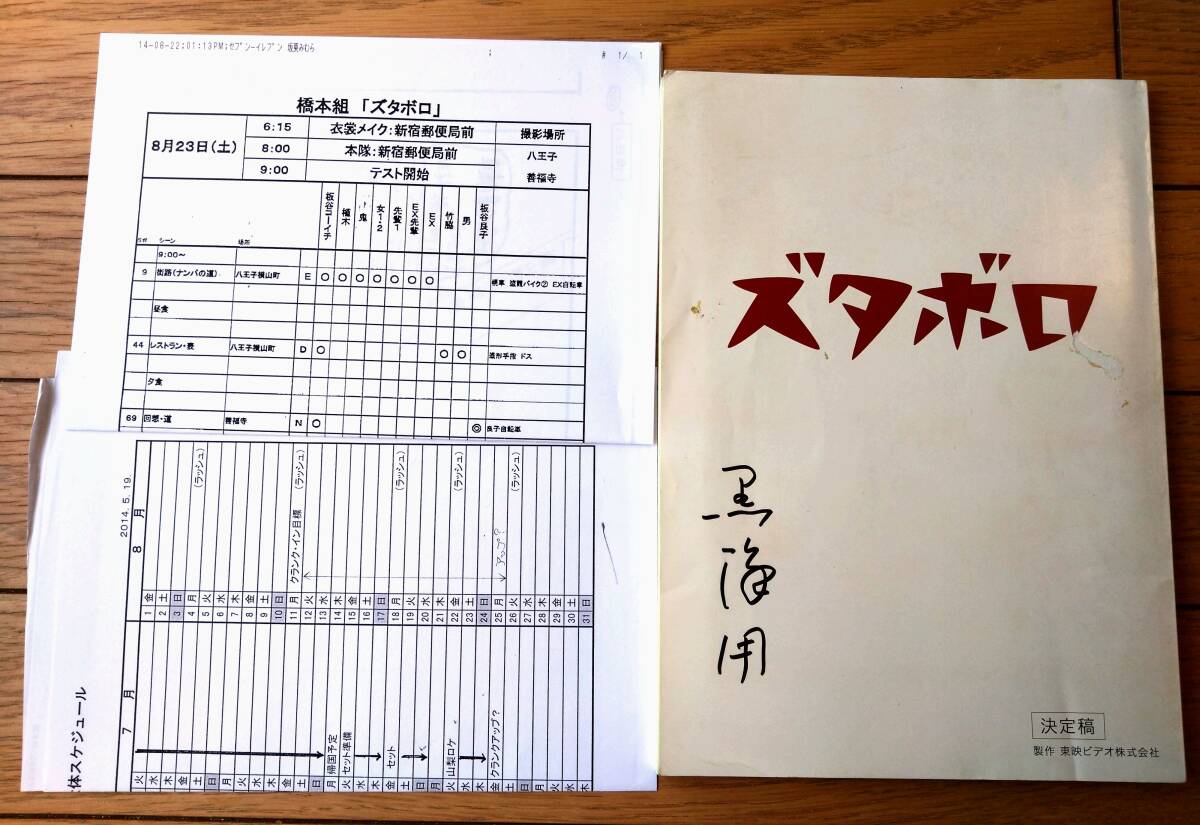 14-08-22;01:13PM;セブンーイレブン 坂東みむら
;
# 1/ 1
橋本組 「ズタボロ」
8月23日(土)
6:15 衣裳メイク:新宿郵便局前 撮影場所
8:00 本隊:新宿郵便局前 八王子
9:00 テスト開始 善福寺
S# シーン 場所 板谷コーイチ 植木 鬼 女1・2 先輩1 EX先輩 EX 竹脇 男 板谷良子
9:00~
9 街路(ナンパの道) 八王子横山町 E ○ ○ ○ ○ ○ ○ ○ 盗難バイク② EX自転車
昼食
44 レストラン・表 八王子横山町 D ○ ○ ○ 造形手指 ドス
夕食
69 回想・道 善福寺 N ○ ◎ 良子自転車
体スケジュール
2014. 5. 19.
7 月
火
水
木
金
土
日
月
火
水
木
金
土
日
月 帰国予定
火 セット準備
水
木
金 セット
土
日
月
火 山梨ロケ
水
木
金 クランクアップ?
土
日
月
火
水
木
8 月
1 金
2 土
3 日
4 月
5 火 (ラッシュ)
6 水
7 木
8 金
9 土
10 日
11 月 クランク・イン目標
12 火 (ラッシュ)
13 水
14 木
15 金
16 土
17 日
18 月
19 火 (ラッシュ)
20 水
21 木
22 金
23 土 (ラッシュ)
24 日
25 月 アップ?
26 火 (ラッシュ)
27 水
28 木
29 金
30 土
31 日
ズタボロ
黒澤用
決定稿
製作 東映ビデオ株式会社